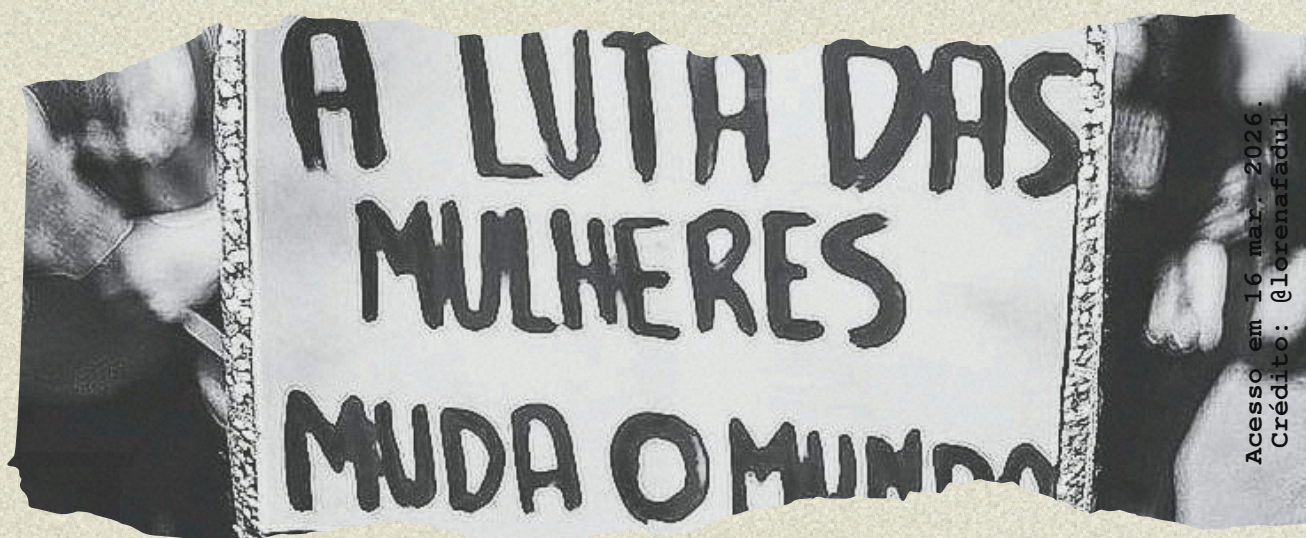 A LUTA DAS
MULHERES
MUDA O MUNDO
Acesso em 16 mar. 2026.
Crédito: @lorenafadul